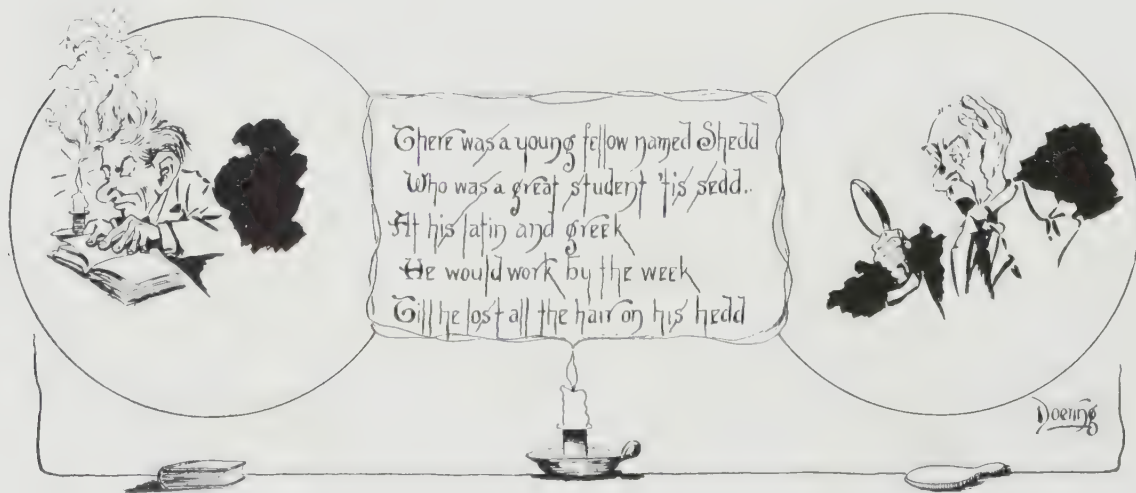 There was a young fellow named Shedd
Who was a great student 'tis sedd..
At his latin and greek
He would work by the week
Till he lost all the hair on his hedd
Doering